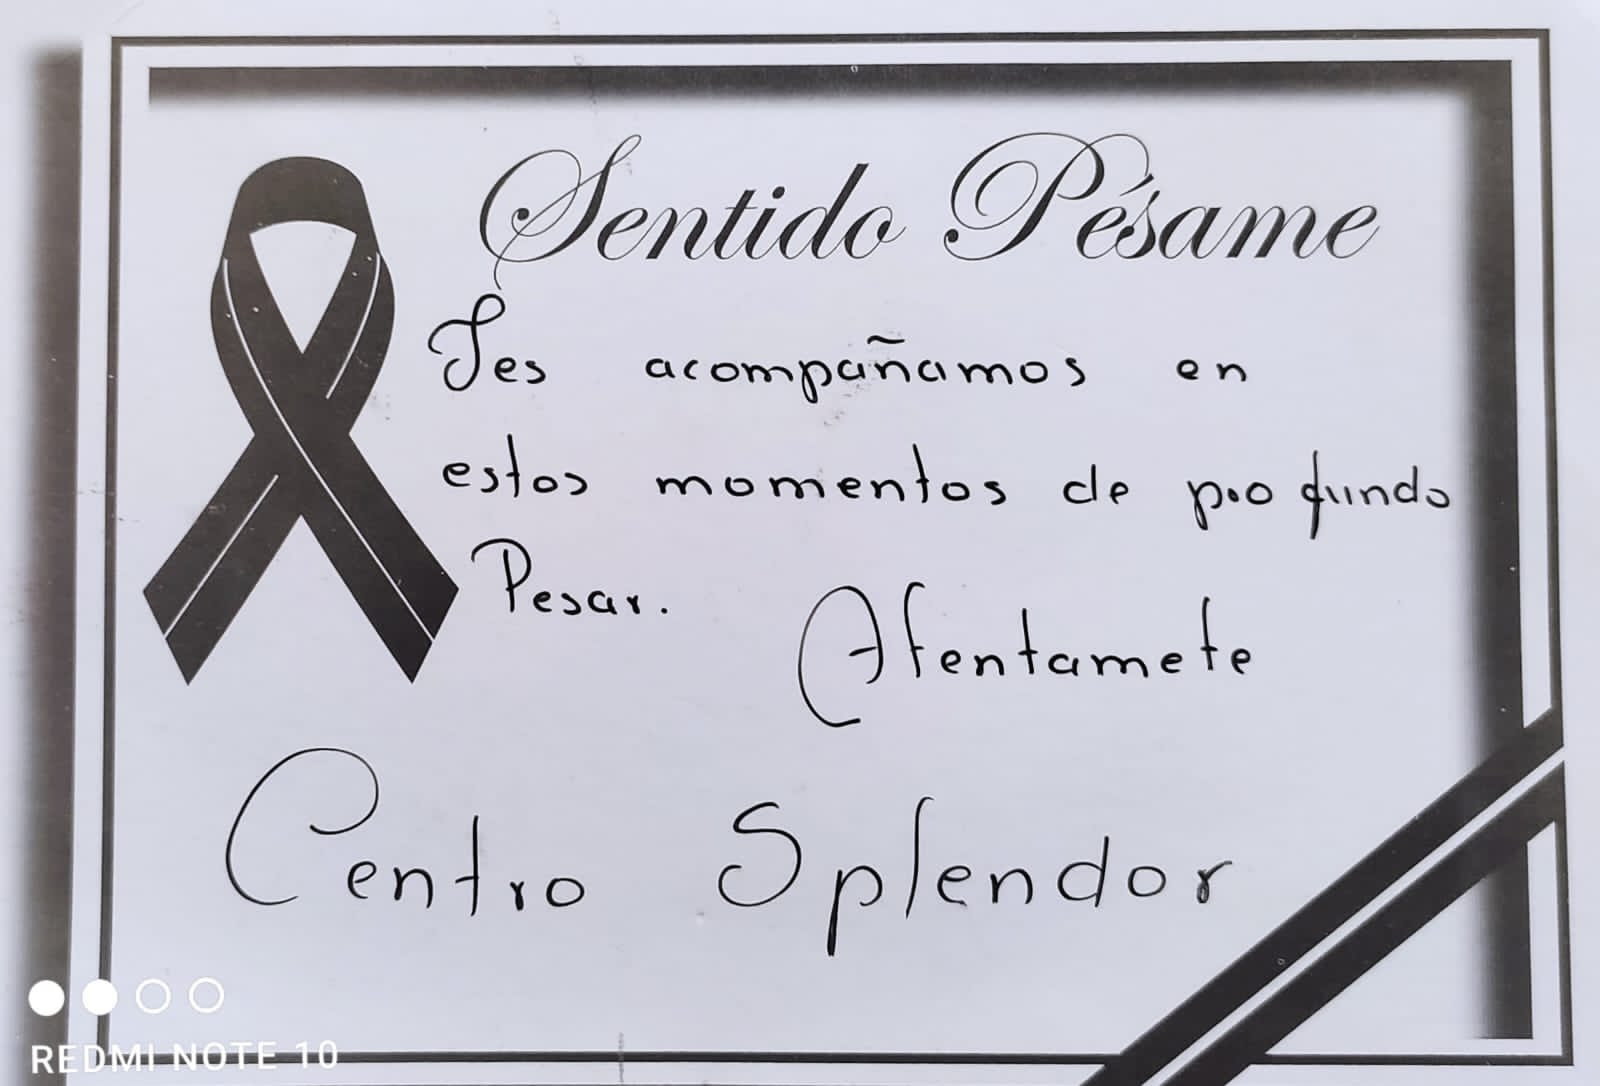 Sentido Pésame
Les acompañamos en
estos momentos de profundo
Pesar.
Atentamete
Centro Splendor
REDMI NOTE 10